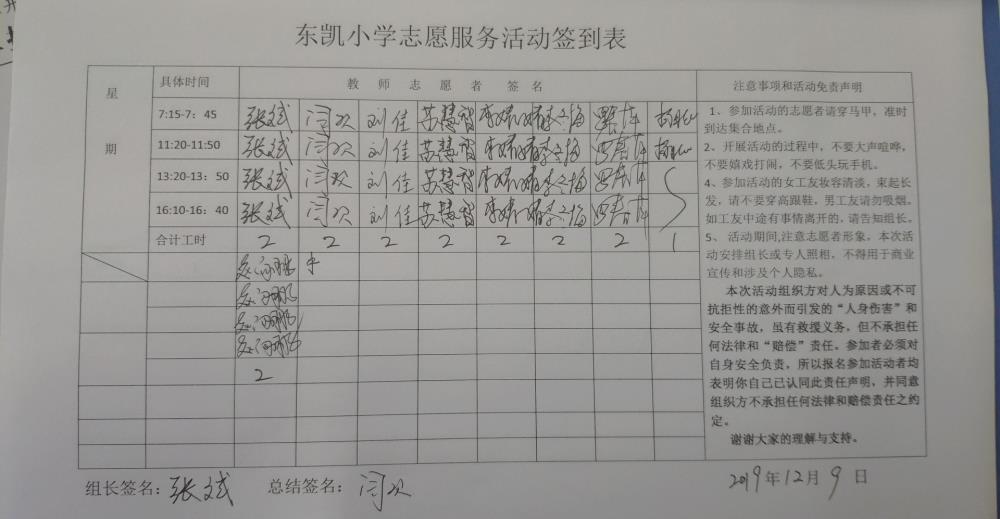 东凯小学志愿服务活动签到表
星期
具体时间 教师志愿者签名 注意事项和活动免责声明
7:15-7：45 张斌 闫欢 刘佳 苏慧智
11:20-11:50 张斌 闫欢 刘佳 苏慧智
13:20-13：50 张斌 闫欢 刘佳 苏慧智
16:10-16：40 张斌 闫欢 刘佳 苏慧智
合计工时 2 2 2 2 2 2 2 1
2
1、参加活动的志愿者请穿马甲，准时
到达集合地点。
2、开展活动的过程中，不要大声喧哗，
不要嬉戏打闹，不要低头玩手机。
4、参加活动的女工友妆容清淡，束起长
发，请不要穿高跟鞋，男工友请勿吸烟。
如工友中途有事情离开的，请告知组长。
5、活动期间,注意志愿者形象，本次活
动安排组长或专人照相，不得用于商业
宣传和涉及个人隐私。
本次活动组织方对人为原因或不可
抗拒性的意外而引发的“人身伤害”和
安全事故，虽有救援义务，但不承担任
何法律和“赔偿”责任。参加者必须对
自身安全负责，所以报名参加活动者均
表明你自己已认同此责任声明，并同意
组织方不承担任何法律和赔偿责任之约
定。
谢谢大家的理解与支持。
组长签名：张斌 总结签名：闫欢 2019年12月9日